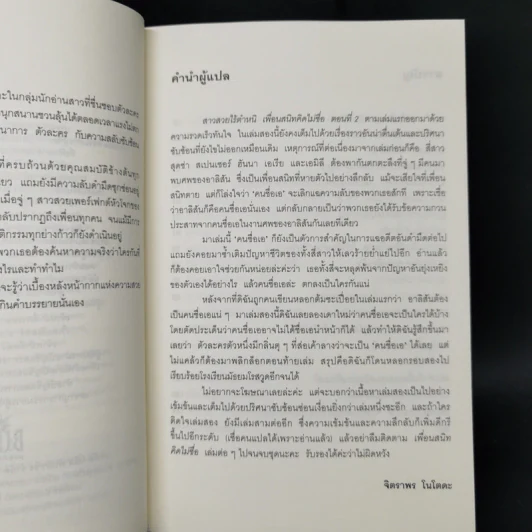 ะในกลุ่มนักอ่านสาวที่ชื่นชอบตัวละคร
นุกสนานชวนลุ้นได้ตลอดเวลาแรงไม่ตก
นาการ ตัวละคร กับความสลับซับซ้อน
ที่ครบถ้วนด้วยคุณสมบัติข้างต้นทุก
ยว แถมยังมีความลับดำมืดซุกซ่อนอยู่
เมื่อจู่ ๆ สาวสวยเพอร์เฟกต์หัวใจของ
ลับปรากฏถึงเพื่อนทุกคน จนแม้มีการ
ติกรรมทุกย่างก้าวก็ยังดำเนินอยู่
พวกเธอต้องค้นหาความจริงว่าใครกันที่
งไรและทำทำไม
จะรู้ว่าเบื้องหลังหน้ากากแห่งความสวย
กินคำบรรยายนั่นเอง
คำนำผู้แปล
สาวสวยไร้ตำหนิ เพื่อนสนิทคิดไม่ซื่อ ตอนที่ 2 ตามเล่มแรกออกมาด้วย
ความรวดเร็วทันใจ ในเล่มสองนี้ยังคงเต็มไปด้วยเรื่องราวอันน่าตื่นเต้นและปริศนา
ซับซ้อนที่ยังไขไม่ออกเหมือนเดิม เหตุการณ์ที่ต่อเนื่องมาจากเล่มก่อนก็คือ สี่สาว
สุดซ่า สเปนเซอร์ ฮันนา เอเรีย และเอมิลี ต้องพากันตกตะลึงที่จู่ ๆ มีคนมา
พบศพของอาลิสัน ซึ่งเป็นเพื่อนสนิทที่หายตัวไปอย่างลึกลับ แม้จะเสียใจที่เพื่อน
สนิทตาย แต่ก็โล่งใจว่า 'คนชื่อเอ' จะเลิกแฉความลับของพวกเธอสักที เพราะเชื่อ
ว่าอาลิสันก็คือคนชื่อเอนั่นเอง แต่กลับกลายเป็นว่าพวกเธอยังได้รับข้อความกวน
ประสาทจากคนชื่อเอในงานศพของอาลิสันกันเลยทีเดียว
มาเล่มนี้ 'คนชื่อเอ' ก็ยังเป็นตัวการสำคัญในการแฉอดีตอันดำมืดต่อไป
แถมยังคอยมาซ้ำเติมปัญหาชีวิตของทั้งสี่สาวให้เลวร้ายย่ำแย่ไปอีก อ่านแล้ว
ก็ต้องคอยเอาใจช่วยกันหน่อยล่ะค่ะว่า เธอทั้งสี่จะหลุดพ้นจากปัญหาอันยุ่งเหยิง
ของตัวเองได้อย่างไร แล้วคนชื่อเอล่ะ ตกลงเป็นใครกันแน่
หลังจากที่ดิฉันถูกคนเขียนหลอกต้มซะเปื่อยในเล่มแรกว่า อาลิสันต้อง
เป็นคนชื่อเอแน่ ๆ มาเล่มสองนี้ดิฉันเลยลองเดาใหม่ว่าคนชื่อเอจะเป็นใครได้บ้าง
โดยตัดประเด็นว่าคนชื่อเออาจไม่ได้ชื่อเอนำหน้าก็ได้ แล้วทำให้ดิฉันรู้สึกขึ้นมา
เลยว่า ตัวละครตัวหนึ่งมีกลิ่นตุ ๆ ที่ส่อเค้าลางว่าจะเป็น 'คนชื่อเอ' ได้เลย แต่
ไม่แคล้วก็ต้องมาพลิกล็อกตอนท้ายเล่ม สรุปคือดิฉันก็โดนหลอกรอบสองไป
เรียบร้อยโรงเรียนมัธยมโรสวูดอีกจนได้
ไม่อยากจะโฆษณาเลยล่ะค่ะ แต่จะบอกว่าเนื้อหาเล่มสองเป็นไปอย่าง
เข้มข้นและเต็มไปด้วยปริศนาซับซ้อนซ่อนเงื่อนยิ่งกว่าเล่มหนึ่งซะอีก และถ้าใคร
ติดใจเล่มสอง ยังมีเล่มสามต่ออีก ซึ่งความเข้มข้นและความลึกลับก็เพิ่มดีกรี
ขึ้นไปอีกระดับ (เชื่อคนแปลได้เพราะอ่านแล้ว) แล้วอย่าลืมติดตาม เพื่อนสนิท
คิดไม่ซื่อ เล่มต่อ ๆ ไปจนจบชุดนะคะ รับรองได้ค่ะว่าไม่ผิดหวัง
จิตราพร โนโตดะ